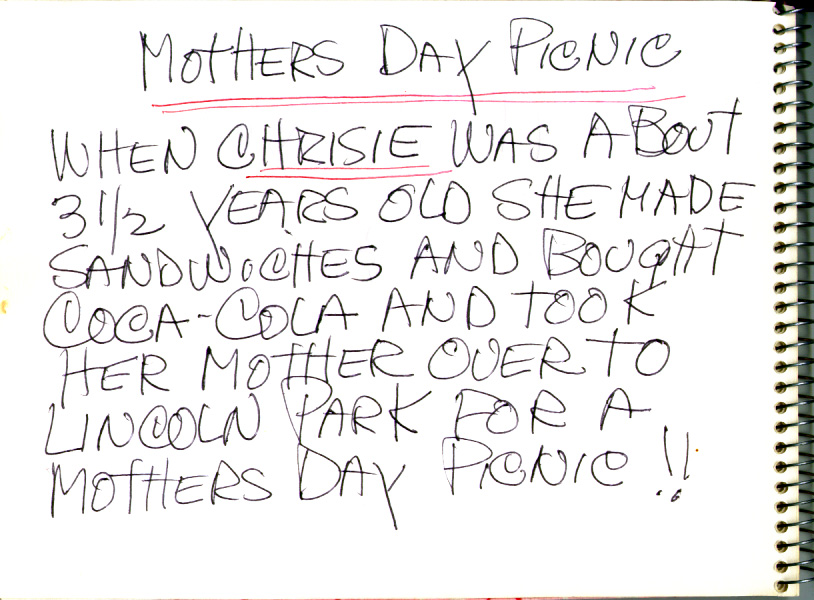 MOTHERS DAY PICNIC
WHEN CHRISIE WAS ABOUT
3 1/2 YEARS OLD SHE MADE
SANDWICHES AND BOUGHT
COCA-COLA AND TOOK
HER MOTHER OVER TO
LINCOLN PARK FOR A
MOTHERS DAY PICNIC !!